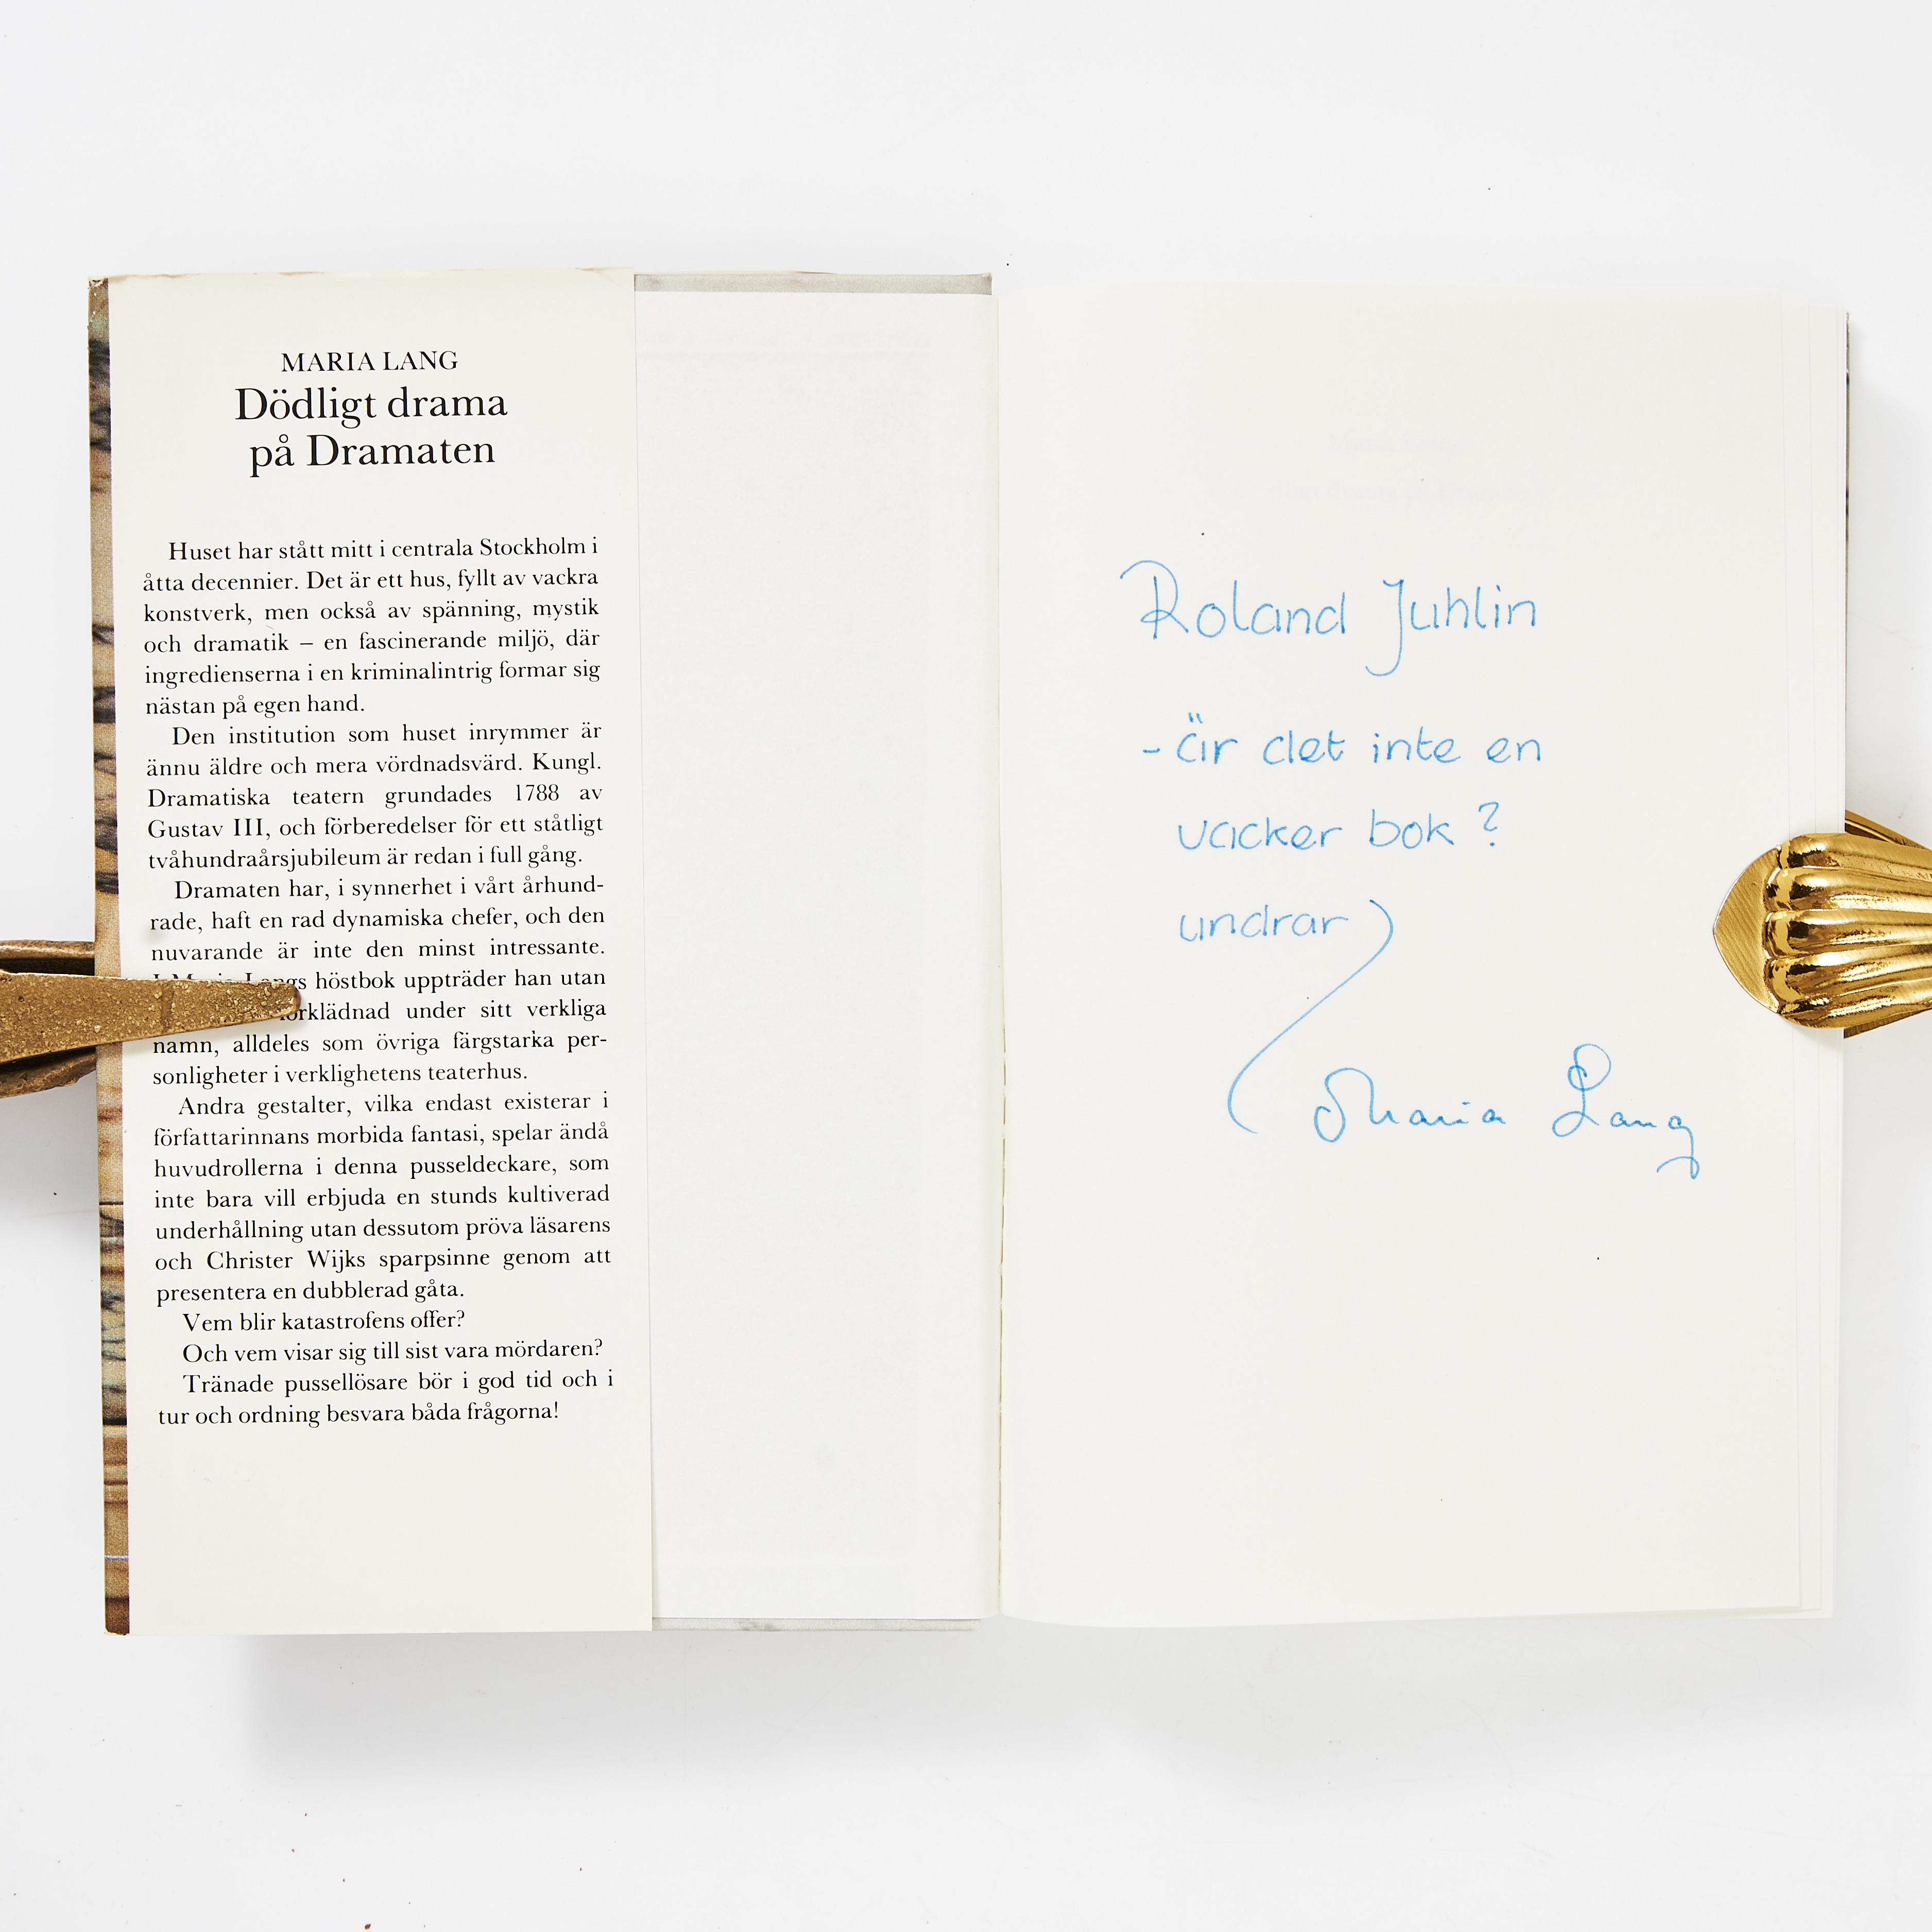 MARIA LANG
Dödligt drama
på Dramaten
Huset har stått mitt i centrala Stockholm i
åtta decennier. Det är ett hus, fyllt av vackra
konstverk, men också av spänning, mystik
och dramatik – en fascinerande miljö, där
ingredienserna i en kriminalintrig formar sig
nästan på egen hand.
Den institution som huset inrymmer är
ännu äldre och mera vördnadsvärd. Kungl.
Dramatiska teatern grundades 1788 av
Gustav III, och förberedelser för ett ståtligt
tvåhundraårsjubileum är redan i full gång.
Dramaten har, i synnerhet i vårt århund-
rade, haft en rad dynamiska chefer, och den
nuvarande är inte den minst intressante.
I Maria Langs höstbok uppträder han utan
förklädnad under sitt verkliga
namn, alldeles som övriga färgstarka per-
sonligheter i verklighetens teaterhus.
Andra gestalter, vilka endast existerar i
författarinnans morbida fantasi, spelar ändå
huvudrollerna i denna pusseldeckare, som
inte bara vill erbjuda en stunds kultiverad
underhållning utan dessutom pröva läsarens
och Christer Wijks sparpsinne genom att
presentera en dubblerad gåta.
Vem blir katastrofens offer?
Och vem visar sig till sist vara mördaren?
Tränade pussellösare bör i god tid och i
tur och ordning besvara båda frågorna!
Roland Juhlin
- är det inte en
vacker bok?
undrar
Maria Lang